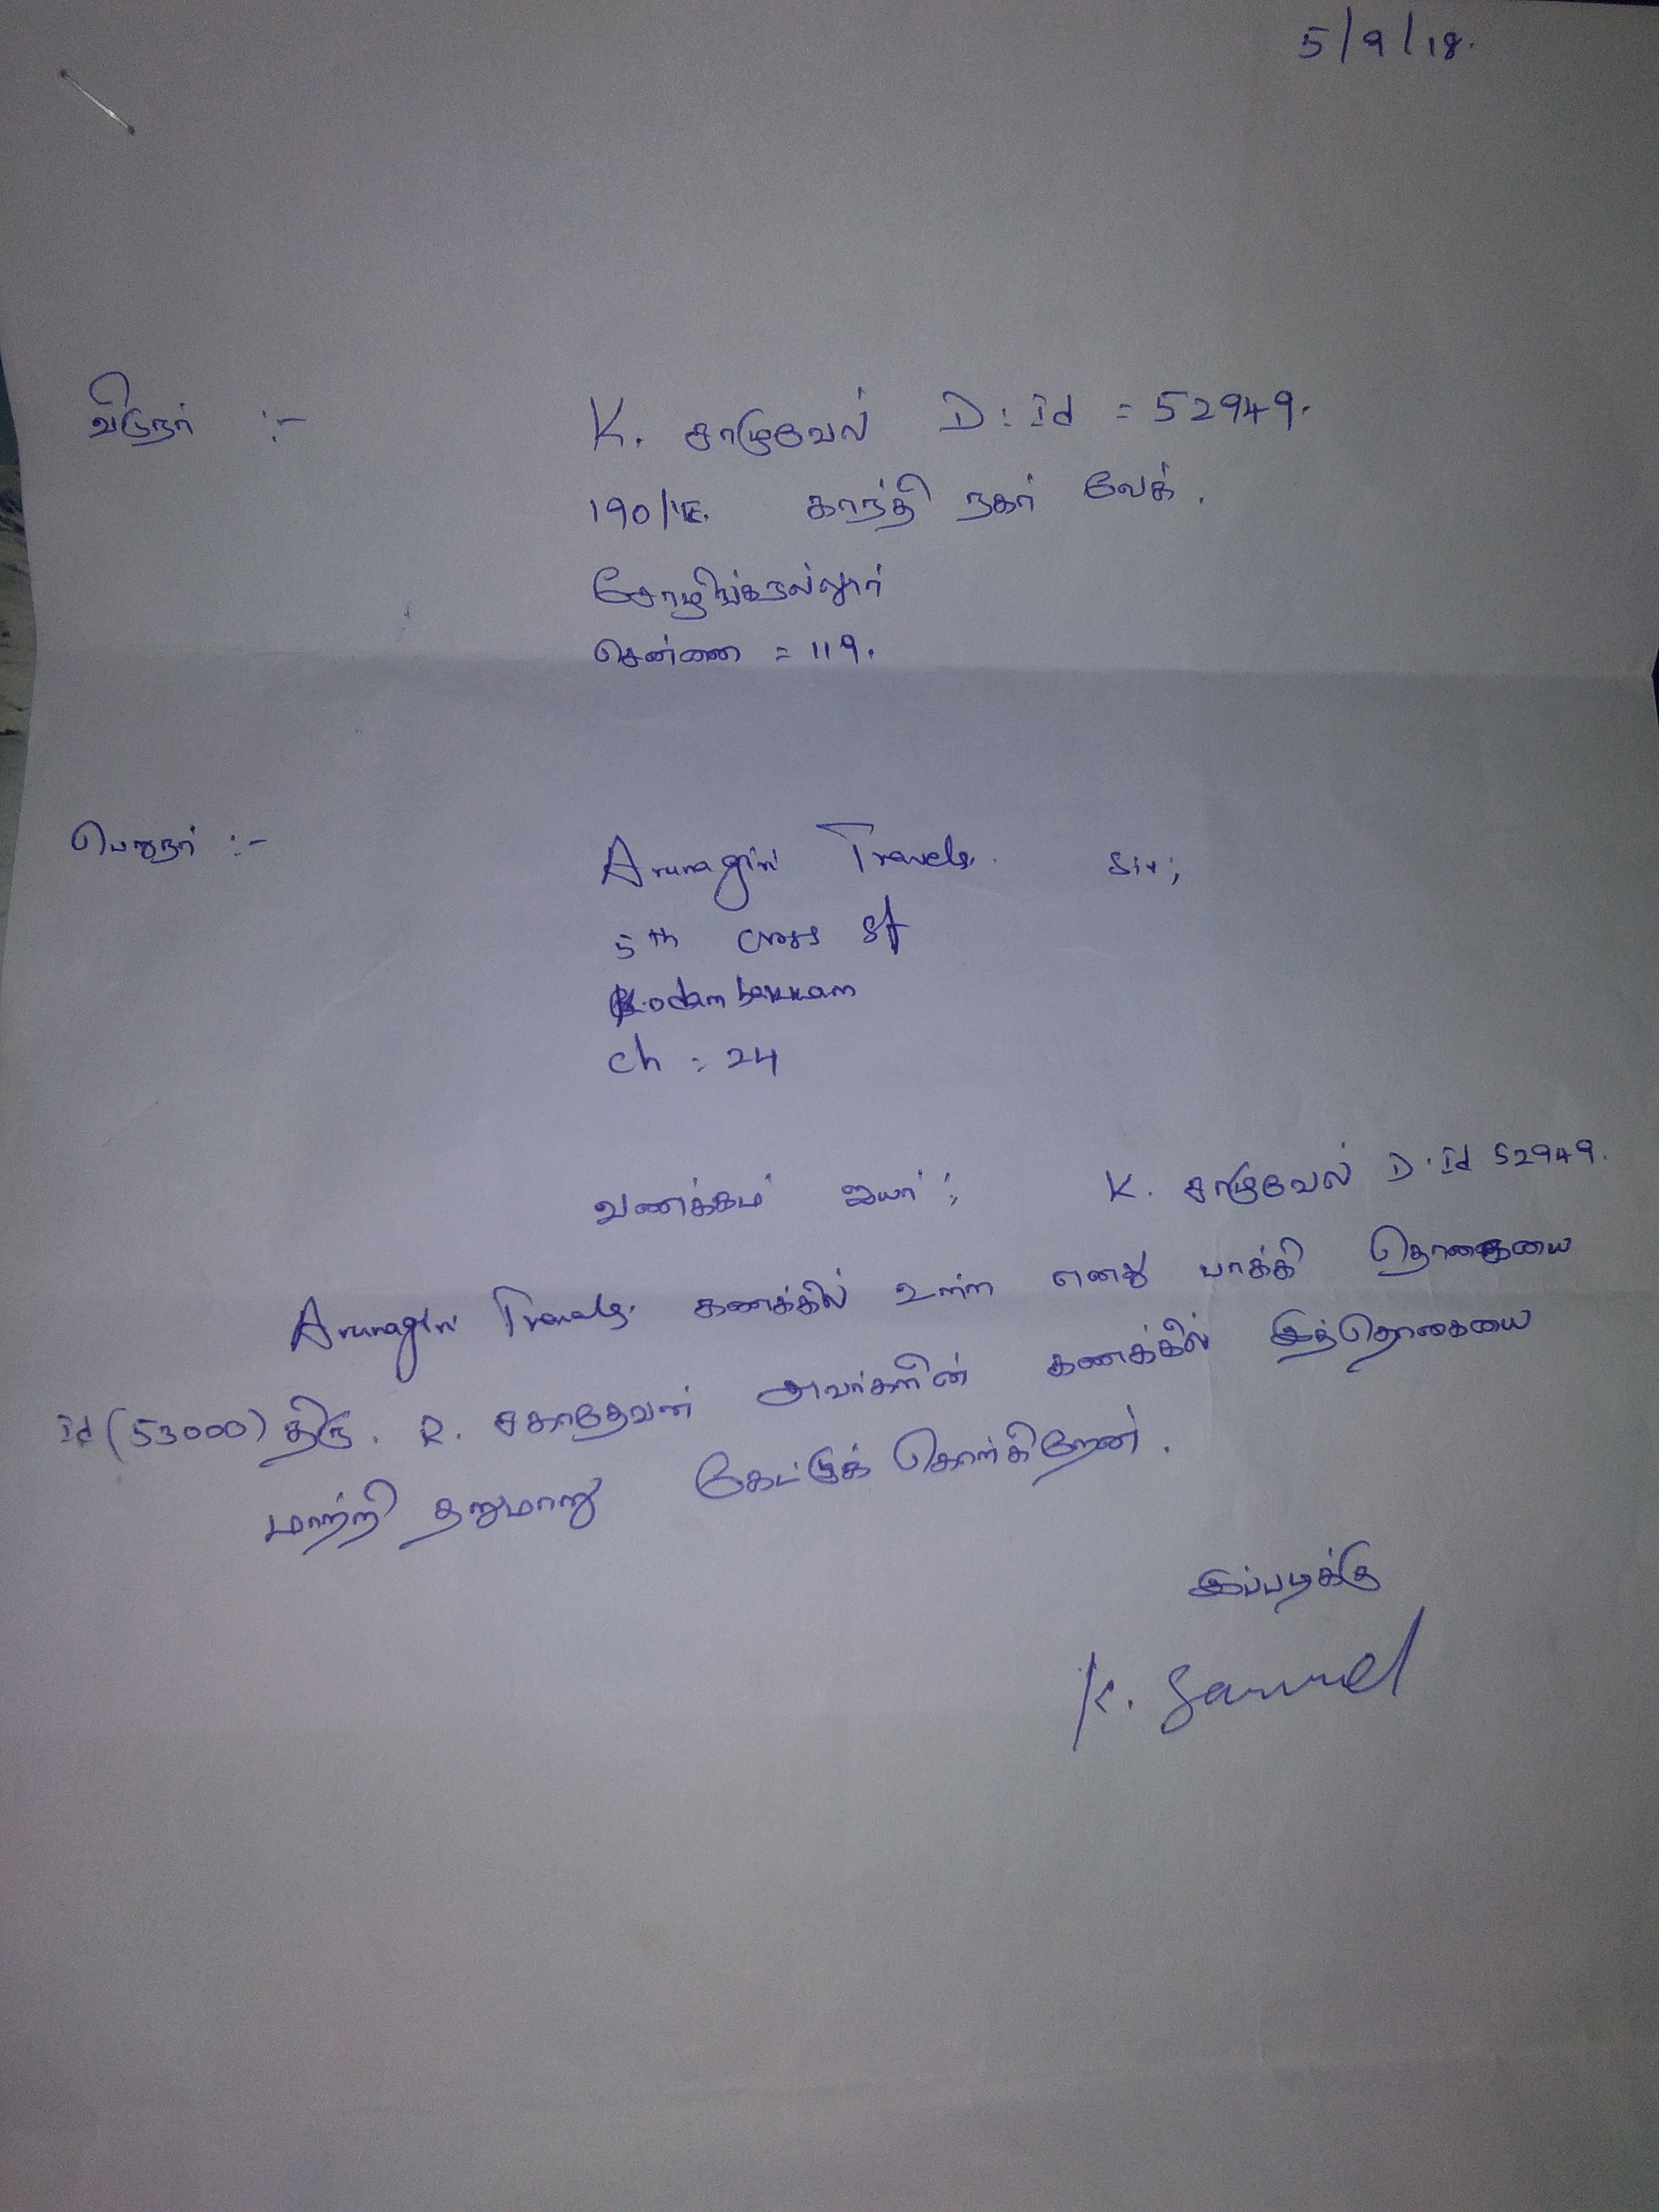 5/9/18.
விடுநர் :- K. சாமுவேல் D: Id = 52949.
190/ காந்தி நகர்
சோழிங்கநல்லூர்
சென்னை = 119.
பெறுநர் :- Arunagiri Travels. Sir;
5th cross st
Kodambakkam
ch : 24
வணக்கம் ஐயா ; K. சாமுவேல் D. Id 52949.
Arunagiri Travels. கணக்கில் உள்ள எனது பாக்கி தொகையை
Id (53000) திரு. R. சகாதேவன் அவர்களின் கணக்கில் இத்தொகையை
மாற்றி தறுமாறு கேட்டுக் கொள்கிறேன்.
இப்படிக்கு
K. Samuel